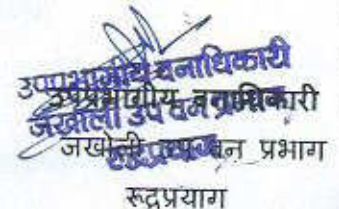 उपप्रभागीय वनाधिकारी
जखोली उप वन प्रभाग
रुद्रप्रयाग
उपप्रभागीय वनाधिकारी
जखोली उप वन प्रभाग
रूद्रप्रयाग